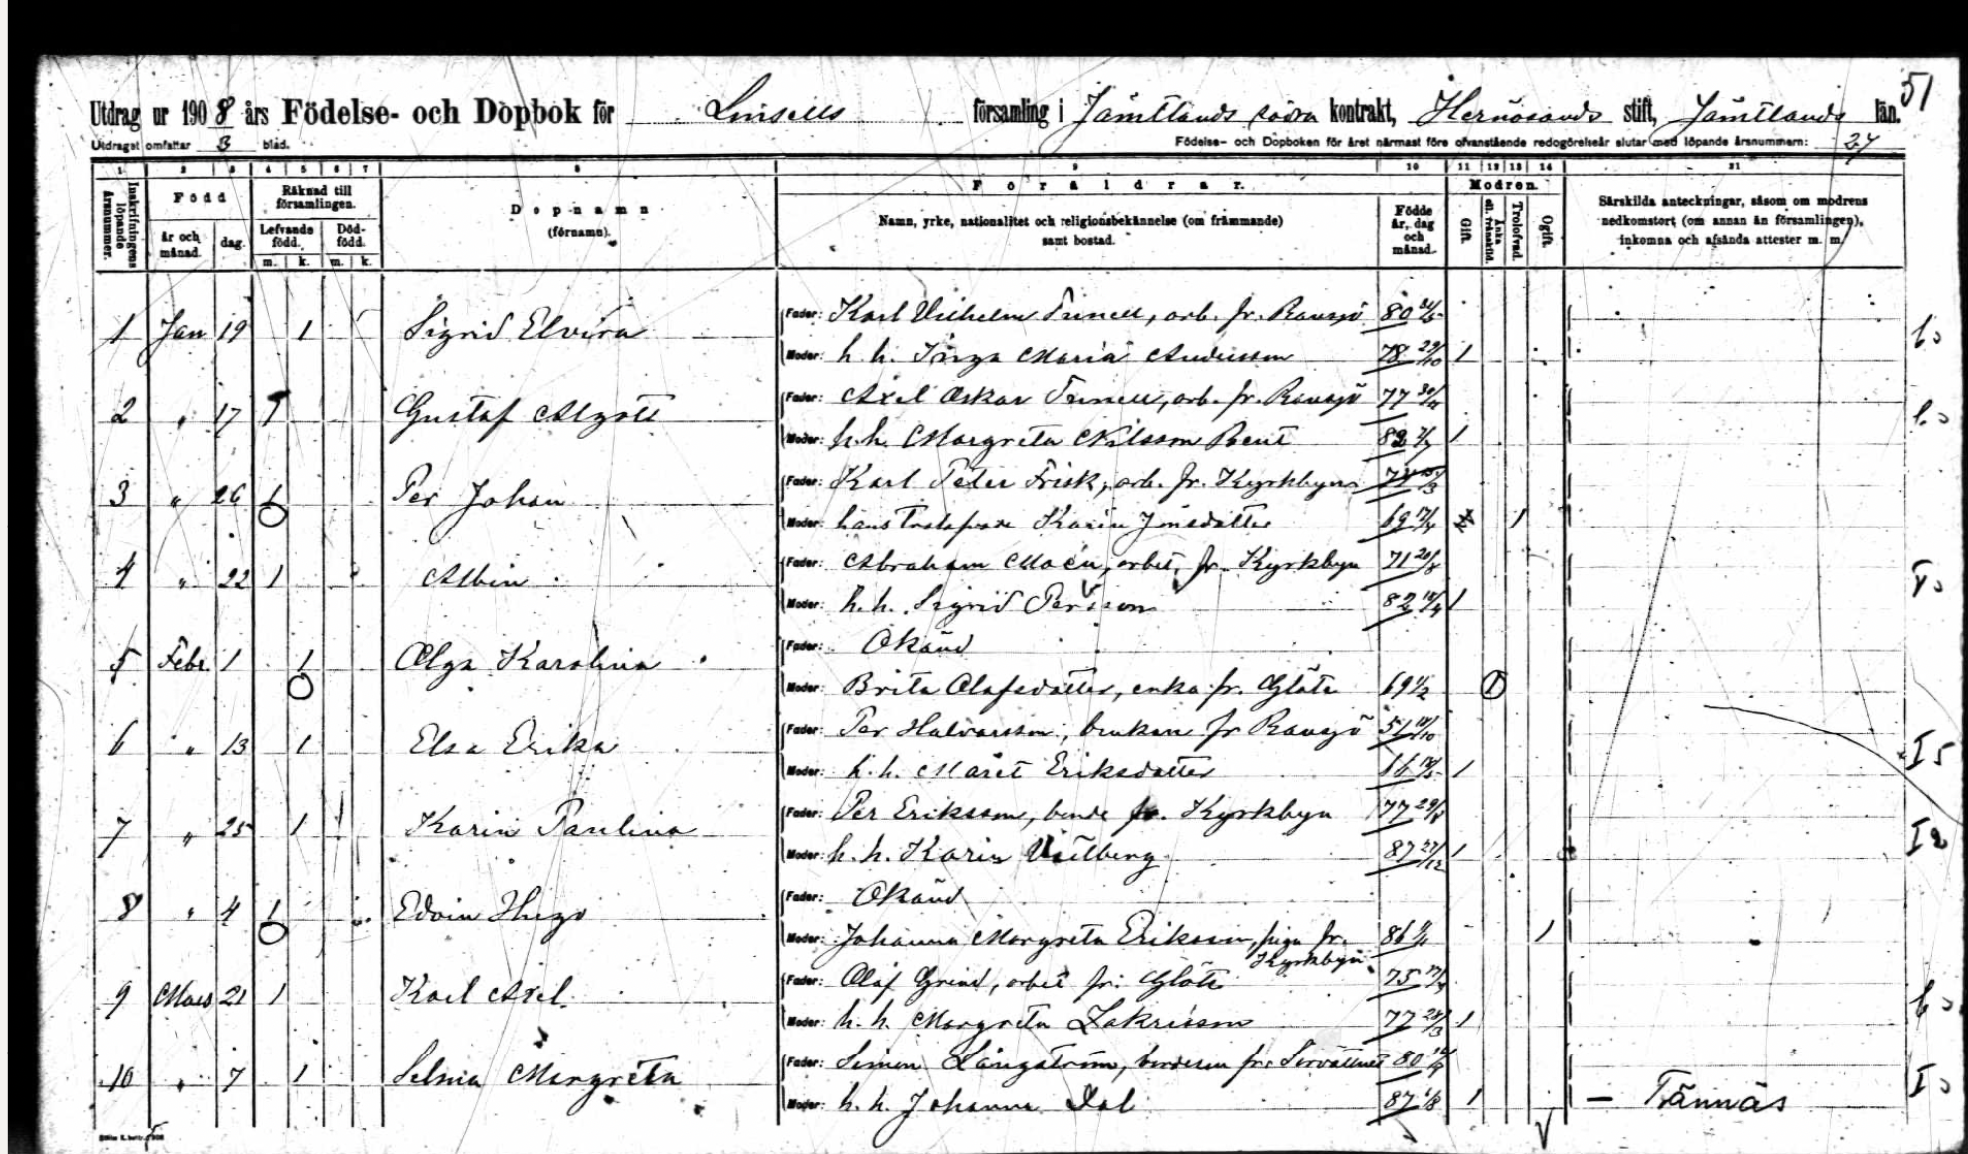 51
Utdrag ur 1908 års Födelse- och Dopbok för Linsells församling i Jämtlands södra kontrakt, Hernösands stift, Jämtlands län.
Utdraget omfattar 3 blad. Födelse- och Dopboken för året närmast före ofvanstående redogörelseår slutar med löpande årsnummern: 27
1 2 3 4 5 6 7 8 9 10 11 12 13 14 21
Inskrifningens löpande årsnummer.
Född
år och månad.
dag.
Räknad till församlingen.
Lefvande född.
Död-född.
m. k. m. k.
Dopnamn
(förnamn).
Föräldrar.
Namn, yrke, nationalitet och religionsbekännelse (om främmande)
samt bostad.
Födde år, dag och månad.
Modren.
Gift.
Enka el. frånskild.
Trolofvad.
Ogift.
Särskilda anteckningar, såsom om modrens
nedkomstort (om annan än församlingen),
inkomna och afsända attester m. m.
1 Jan 19 1 Sigrid Elvira Fader: Karl Vilhelm Trinell, arb. fr. Ransjö 80
Moder: h. h. Inga Maria Andersson 78 29/10 1
2 " 17 1 Gustaf Algott Fader: Axel Oskar Trinell, arb. fr. Ransjö 77
Moder: h. h. Margreta Nilsson 82 1
3 " 26 1 Per Johan Fader: Karl Peter Frisk, arb. fr. Kyrkbyn
Moder: hans trolofvade Karin Jonsdotter 69 1
4 " 22 1 Albin Fader: Abraham Moén, arbet. fr. Kyrkbyn 71 20/8
Moder: h. h. Sigrid Persson 82 1
5 Febr. 1 1 Olga Karolina Fader: Okänd
Moder: Brita Olafsdotter, enka fr. Glöte 69 1/2 1
6 " 13 1 Elsa Erika Fader: Per Halvarsson, brukare fr Ransjö 51
Moder: h. h. Märet Eriksdotter 66 1 I 5
7 " 25 1 Karin Paulina Fader: Per Eriksson, bonde fr. Kyrkbyn 77
Moder: h. h. Karin Vallberg 87 27/12 1 I 2
8 " 4 1 Edvin Hugo Fader: Okänd
Moder: Johanna Margreta Eriksson, piga fr. Kyrkbyn 86 1
9 Mars 21 1 Karl Axel Fader: Olof Grind, arbet fr. Glöte 75
Moder: h. h. Margreta Zakrisson 77 28/3 1
10 " 7 1 Selma Margreta Fader: Simon Långström, bondeson fr. Sörvattnet 80
Moder: h. h. Johanna Dal 87 1/8 1 – Tännäs